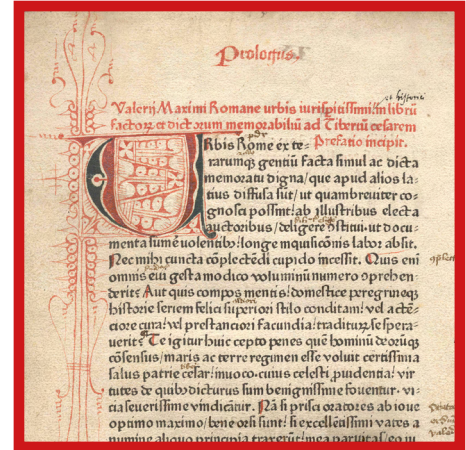 Prologus.
Valerij Maximi Romane urbis iurispitissimi in librū
factoꝝ et dictorum memorabiliū ad Tiberiū cesarem
Prefatio incipit.
URbis Rome exte-
rarumqꝫ gentiū facta simul ac dicta
memoratu digna/ que apud alios la-
tius diffusa sūt/ ut quambreviter co-
gnosci possint/ ab illustribus electa
auctoribus/ deligere ꝯstitui. ut docu-
menta sumē volentibꝰ/ longe inquisicōnis labor absit.
Nec mihi cuncta cōplectēdi cupido incessit. Quis eni
omnis evi gesta modico voluminū numero ꝯprehen-
derit? Aut quis compos mentis/ domestice peregrineqꝫ
historie seriem felici superiorū stilo conditam/ vel actē-
ciore cura/ vel prestanciori facundia/ traditurū se spera-
verit? Te igitur huic cepto penes quē hominū deorūqꝫ
cōsensus/ maris ac terre regimen esse voluit certissima
salus patrie cesar/ invoco. cuius celesti ꝓvidentia/ vir
tutes de quibꝰ dicturus sum benignissime foventur. vi-
cia severissime vindicātur. Nā si prisci oratores ab iove
optimo maximo/ bene orsi sunt/ si excellētissimi vates a
numine aliquo principia traxerūt/ mea parvitas/ eo iu